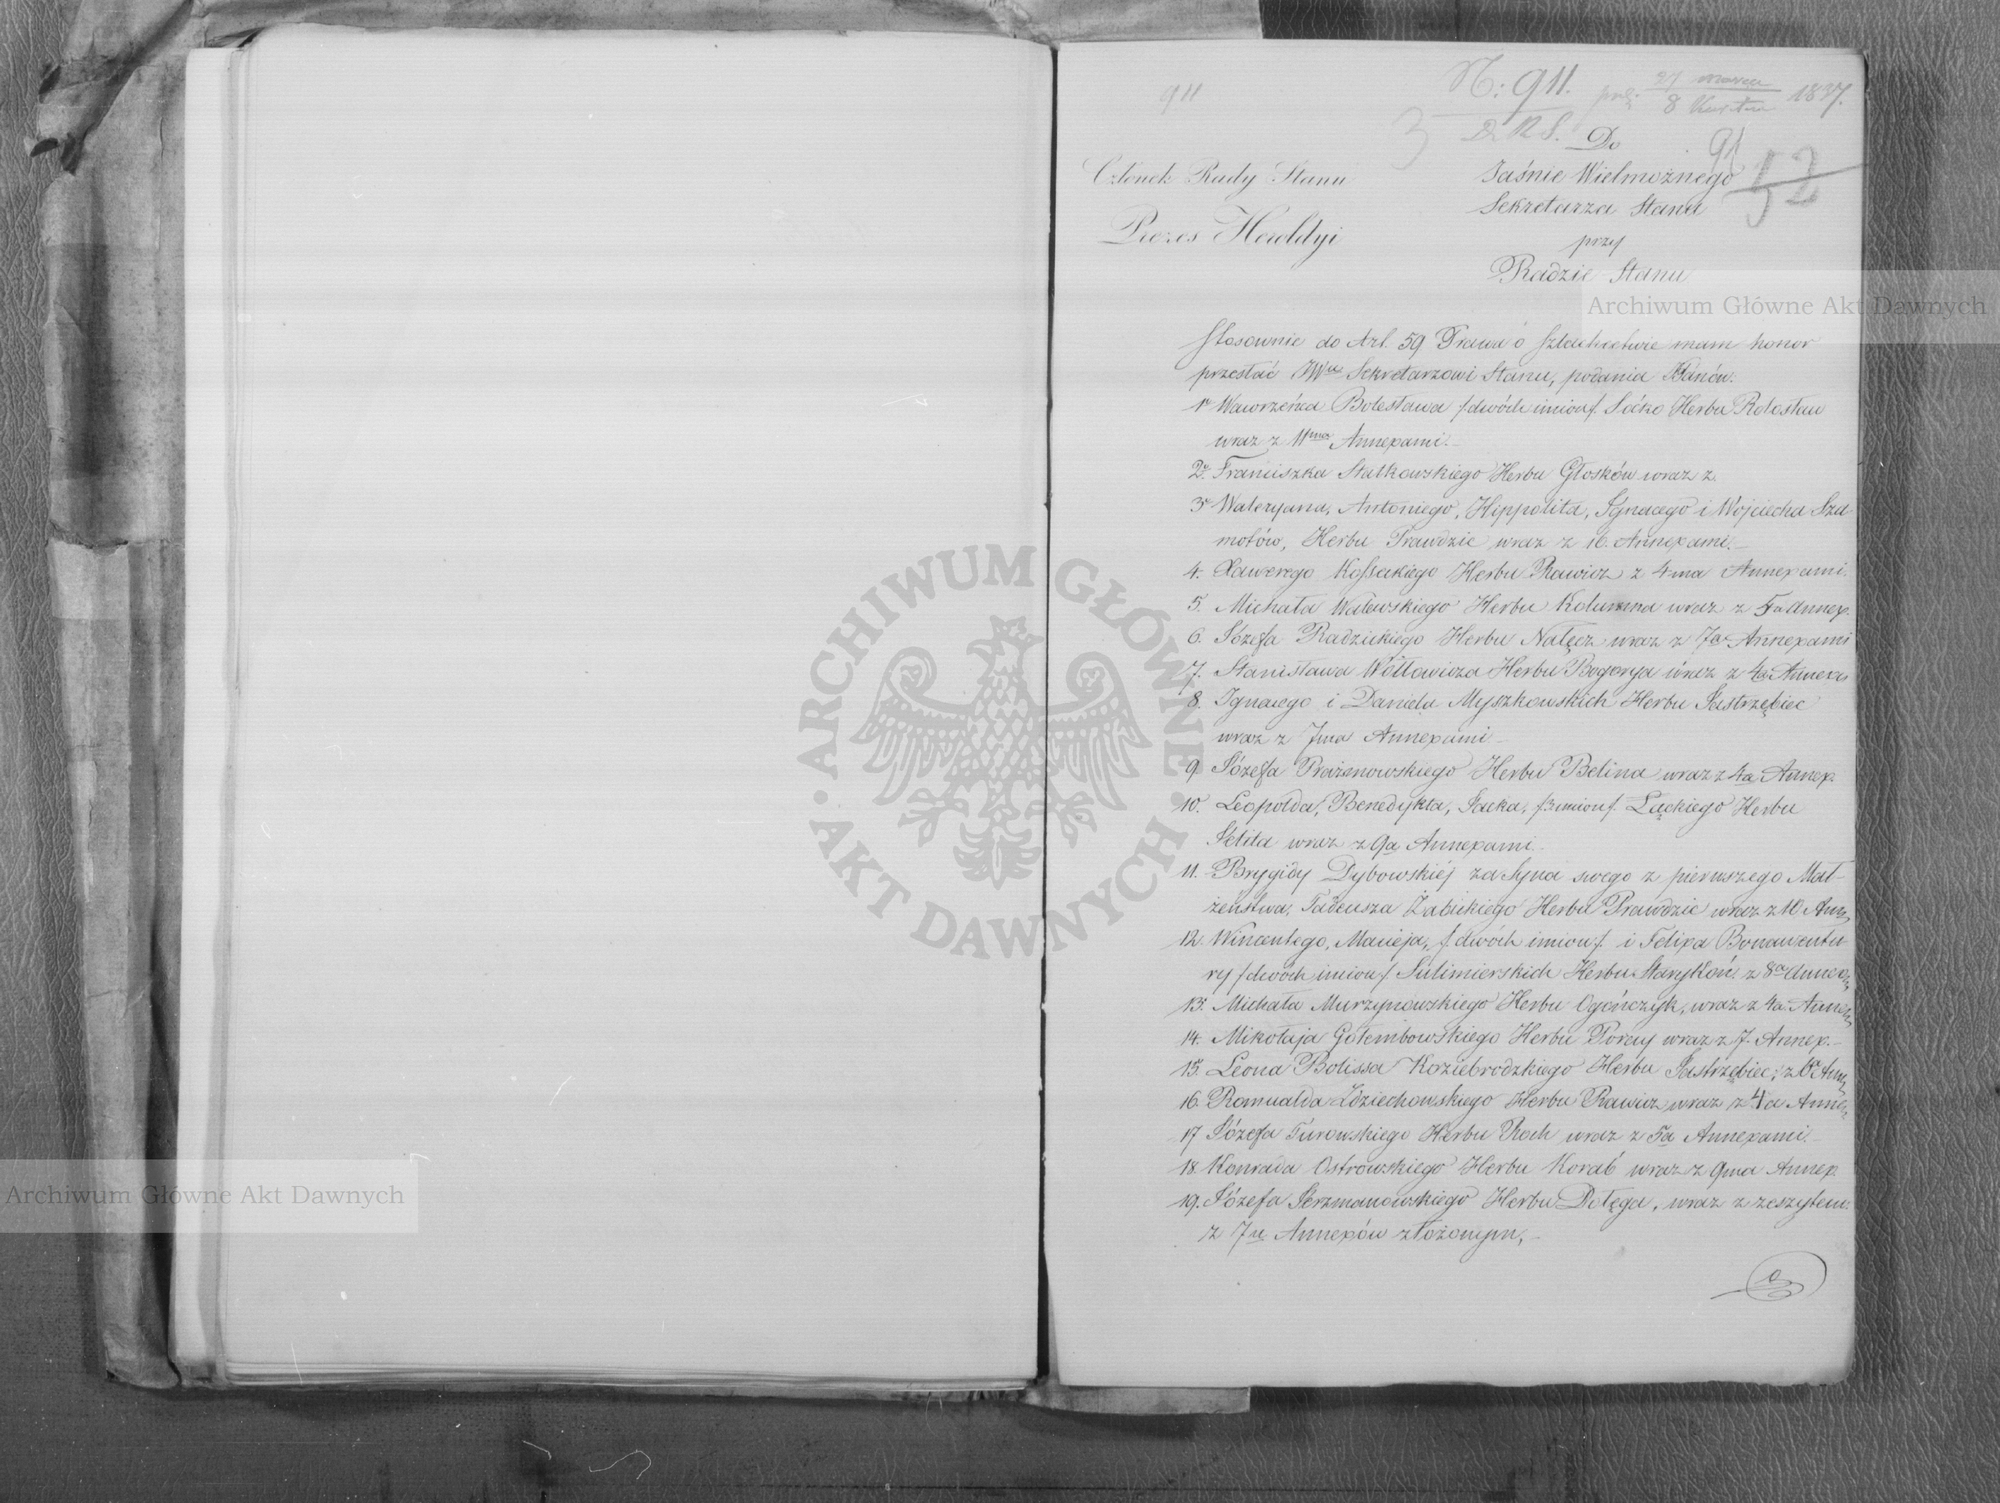 911
N: 911. 27 marca 1837.
8 Kwietnia
3 D. R. S.
Do
91
52
Członek Rady Stanu
Jaśnie Wielmożnego
Sekretarza Stanu
Prezes Heroldyi
przy
Radzie Stanu
Archiwum Główne Akt Dawnych
Stosownie do Art. 59 Prawa o Szlachectwie mam honor
przesłać JWu Sekretarzowi Stanu, podania PPanów.
1e Wawrzeńca Bolesława /dwóch imion/ Soćko Herbu
wraz z 11ma Annexami.
2e Franciszka Statkowskiego Herbu Głosków wraz z
3e Waleryana, Antoniego, Hippolita, Ignacego i Wojciecha Sza-
motów, Herbu Prawdzic wraz z 16. Annexami.
4. Xawerego Kossakiego Herbu Rawicz z 4ma Annexami.
5. Michała Walewskiego Herbu Kolumna wraz z 5a Annex.
6. Józefa Radzickiego Herbu Nałęcz wraz z 7a Annexami
7. Stanisława Wołłowicza Herbu Bogorya wraz z 4a Annexa
8. Ignacego i Daniela Myszkowskich Herbu Jastrzębiec
wraz z 7ma Annexami
9 Józefa Prażmowskiego Herbu Belina wraz z 4a Annex.
10. Leopolda, Benedykta, Jacka, /3 imion/ Łąckiego Herbu
Jelita wraz z 9a Annexami.
11. Brygidy Dybowskiéj za Syna swego z pierwszego Mał-
żeństwa, Tadeusza Żabickiego Herbu Prawdzic wraz z 10 Ann
12. Wincentego, Macieja, /dwóch imion/ i Felixa Bonawentu-
ry /dwóch imion/ Sulimierskich Herbu Starykoń z 8a Annex
13. Michała Murzynowskiego Herbu Ogończyk, wraz z 4a Annex
14. Mikołaja Gołembowskiego Herbu Poray wraz z 7. Annex.
15. Leona Bolissa Koziebrodzkiego Herbu Jastrzębiec, z 6a Ann
16. Romualda Zdziechowskiego Herbu Rawicz wraz z 4a Annex
17 Józefa Turowskiego Herbu Roch wraz z 5a Annexami.
18. Konrada Ostrowskiego Herbu Korab wraz z 9ma Annex
19. Józefa Jerzmanowskiego Herbu Dołęga, wraz z zeszytem
z 7u Annexów złożonym,
ARCHIWUM GŁÓWNE AKT DAWNYCH
Archiwum Główne Akt Dawnych